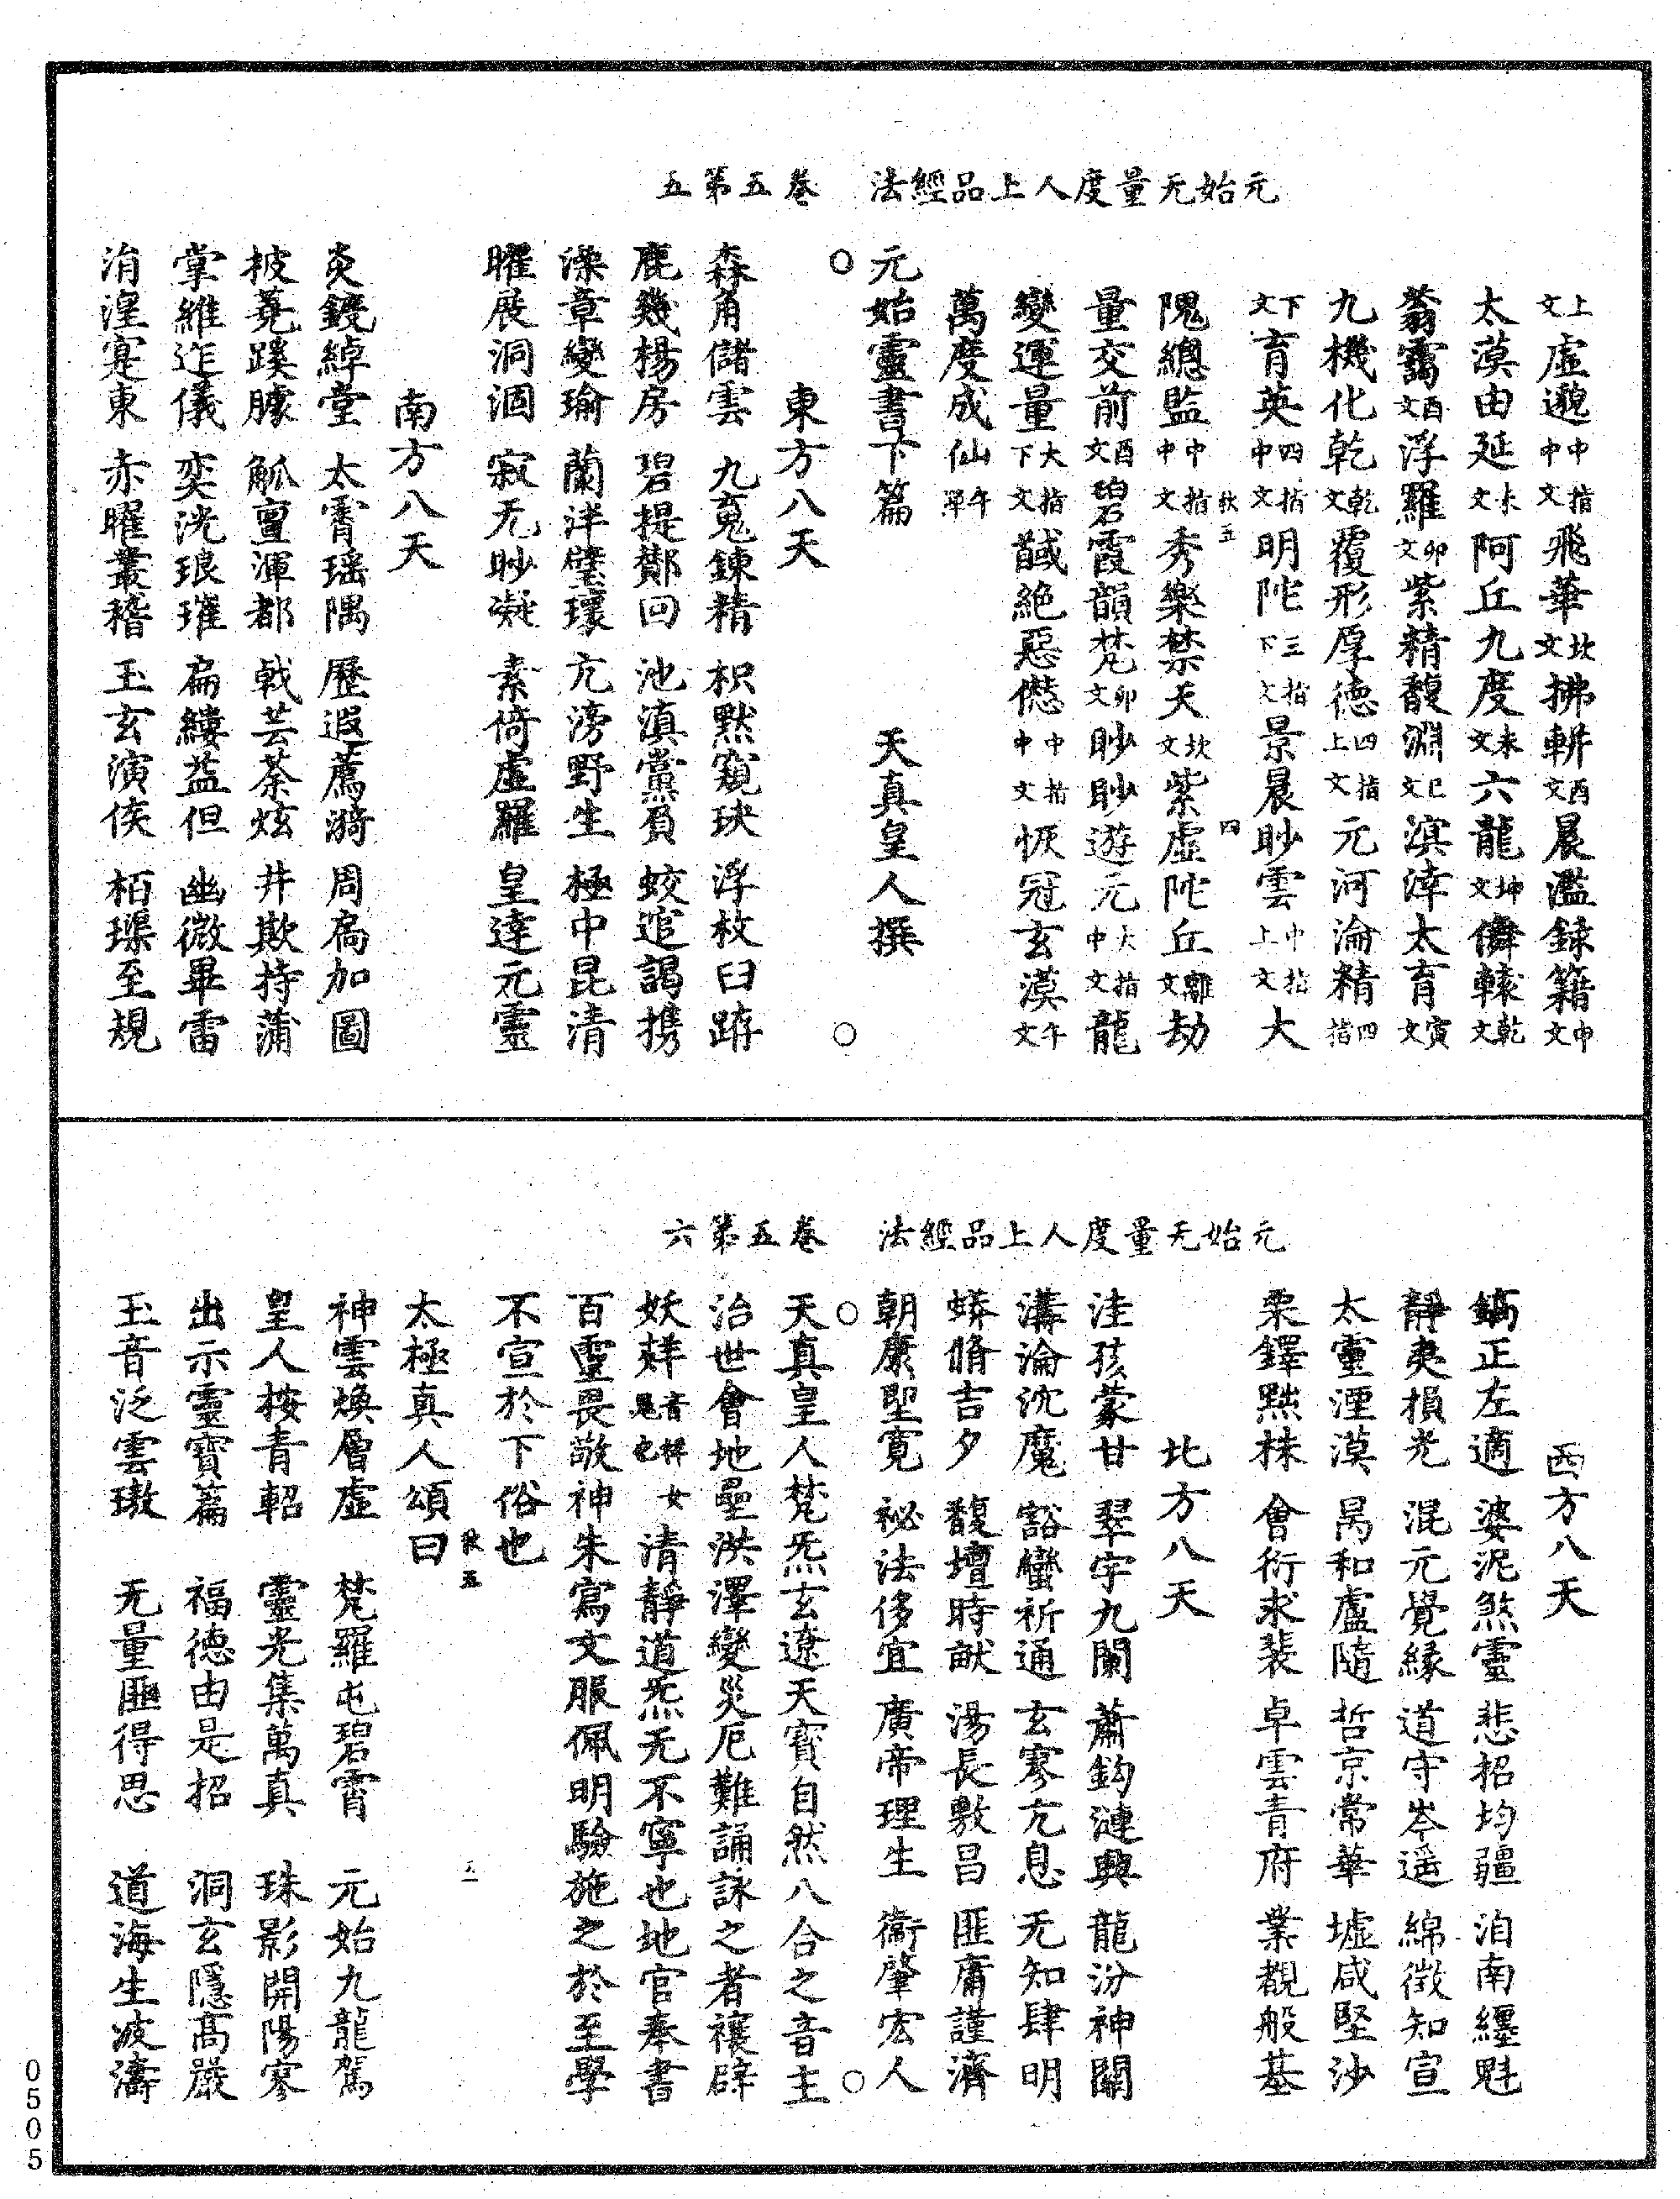 元始无量度人上品經法　卷五第五
上文虛邈中指中文飛華坎文拂軿酉文晨濫錸籍申文
太漠由延未文阿丘九度未文六龍坤文儛轅乾文
蓊靄酉文浮羅卯文紫精馥淵巳文溟涬太育寅文
九機化乾乾文覆形厚德四指上文元河淪精四指
下文育英四指中文明陀三指下文景晨眇雲中指上文大
隗總監中指中文秀樂禁天坎文紫虛陀丘離文劫
量交前酉文碧霞韻梵卯文眇眇遊元大指中文龍
變運量大指下文馘絶惡僁中指中文恢冠玄漠午文
萬度成仙午單
元始靈書下篇　天真皇人撰
東方八天
森角儲雲　九䰟鍊精　枳黙窺玦　浮枚臼蹄
鹿幾楊房　碧提鄭回　池滇黨員　蛟逭謁攜
澡章變瑜　蘭泮璧瓌　亢滂野生　極中昆清
曜展洞涸　寂无眇凝　素倚虛羅　皇達元靈
南方八天
炎鐃綽堂　太霄瑶隅　歷遐薦漪　周扃加圖
披蕘蹊臄　觚亶渾都　戟芸荼炫　井欺持蒲
掌維迮儀　奕洸琅璀　扁縷益但　幽微畢雷
洧湟寔東　赤曜叢稽　玉玄演俟　栢璖至規
元始无量度人上品經法　卷五第六
西方八天
鎬正左適　婆泥煞靈　悲招均疆　洎南纒魁
靜夷損光　混元覺緣　道守岑遥　綿徵知宣
太靈湮漠　昺和盧隨　哲京常華　墟咸堅沙
栗鐸㸃秣　會衍求裴　卓雲青府　業覩般基
北方八天
洼孩蒙甘　翠宇九闌　蕭鈎漣興　龍汾神關
溝淪沈魔　豁蠻祈通　玄寥亢息　无知肆明
蟒脩吉夕　馥壇時猷　湯長敷昌　匪庸謹濟
朝康堲寛　祕法侈宜　廣帝理生　衞肇宏人
天真皇人梵炁玄遼天寳自然八合之音主
治世會地壘洪澤變災厄難誦詠之者禳辟
妖𡛟清靜道炁无不寧也地官奉書
百靈畏敬神朱寫文服佩明驗施之於至學
不宣於下俗也
太極真人頌曰
神雲煥層虛　梵羅屯碧霄　元始九龍駕
皇人按青軺　靈光集萬真　珠影開陽寥
出示靈寳篇　福德由是招　洞玄隱髙嚴
玉音泛雲璈　无量匪得思　道海生波濤
0505